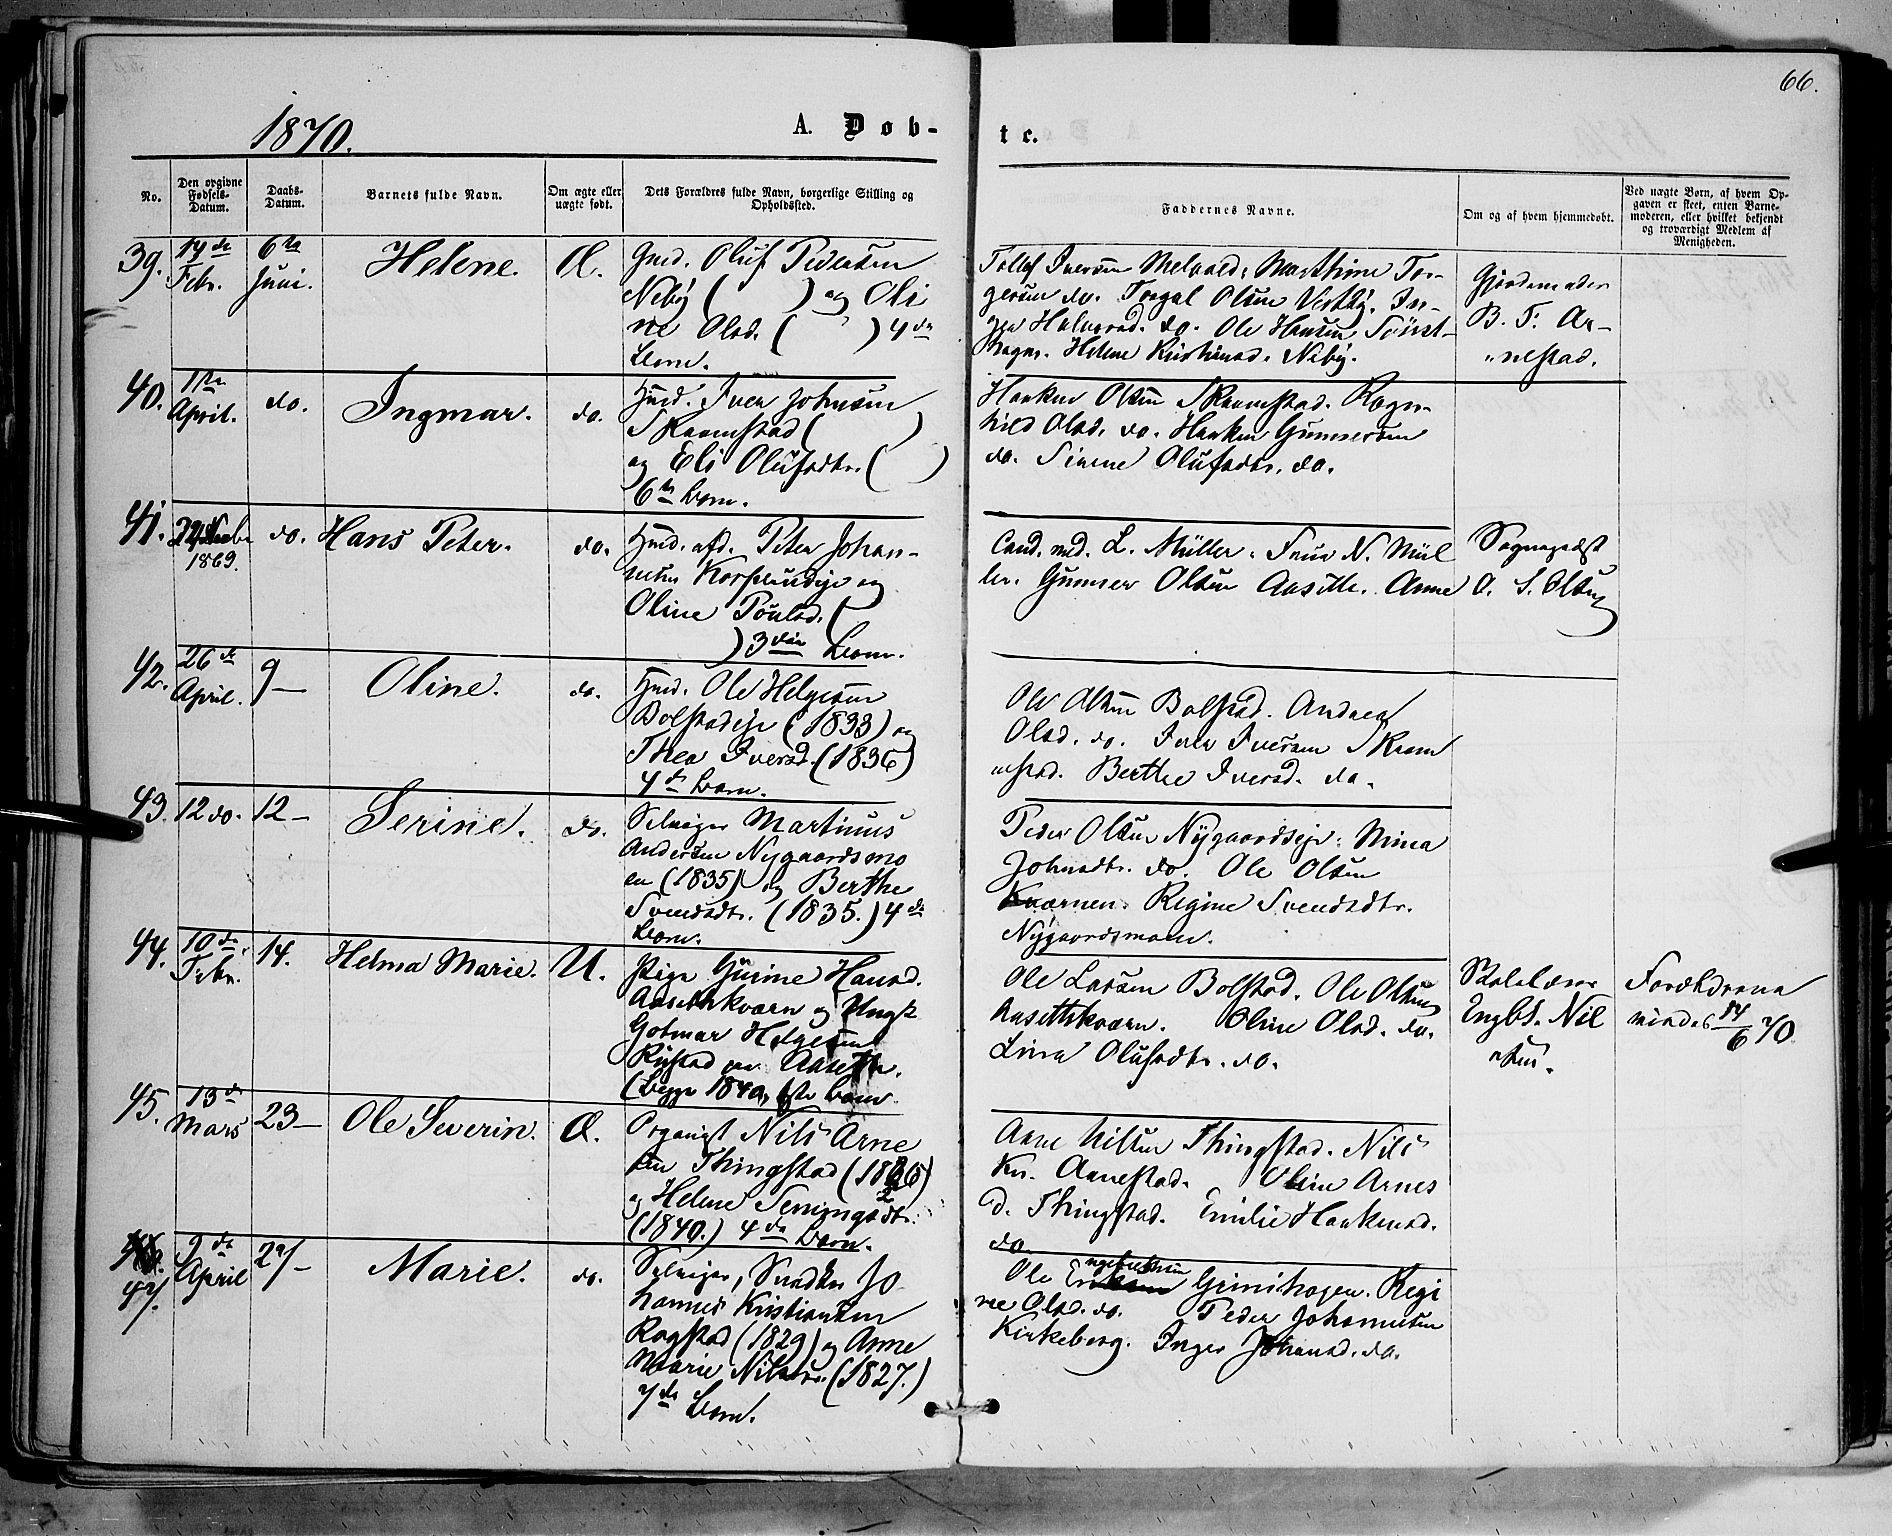 66.
1870.
A. Døb-
te.
No.
Den opgivne Fødsels-Datum.
Daabs-Datum.
Barnets fulde Navn.
Om ægte eller uægte født.
Dets Forældres fulde Navn, borgerlige Stilling og Opholdssted.
Faddernes Navne.
Om og af hvem hjemmedøbt.
Ved uægte Børn, af hvem Op-
gaven er skeet, enten Barne-
moderen, eller hvilket bekjendt
og troværdigt Medlem af
Menigheden.
39.
14de
Febr.
6te
Juni.
Helene.
Æ.
Gmd. Oluf Pedersen
Neby ( ) og Oli
ne Olsd. ( ) 4de
Barn.
Tollef Iversen Melvold, Marthine Tor-
gersen do. Torgal Olsen Vestby.
Halvorsd. do. Ole Hansen
Helene Kristiansd. Neby.
Gjordemoder
B. T. Ar-
nestad.
40.
1ste
April.
do.
Ingmar.
do.
Hmd. Iver Johnsen
Skramstad ( )
og Eli Olufsdtr. ( )
6te Barn.
Haaken Olsen Skramstad. Ragn-
hild Olsd. do. Haaken Gunnersen
do. Sirene Olufsdtr. do.
41.
1869.
do.
Hans Peter.
do.
Hmd. afd. Peter Johan-
nesen og
Oline Poulsd. (
) 3die Barn.
Cand. med. L. Müller. Frue N. Mül
ler. Gunner Olsen Aasette. Anne
Sognepræst
O. S. Olsen
42.
26de
April.
9 –
Oline.
do.
Hmd. Ole Helgesen
Bolstadeje (1833) og
Thea Iversd. (1836)
4de Barn.
Ole Olsen Bolstad. Andrea
Olsd. do. Iver Iversen Skram
stad. Berthe Iversd. do.
43.
12 do.
12 –
Serine.
do.
Selveier Martinus
Andersen Nygaardsmo
en (1835) og Berthe
Svendsdtr. (1835.) 4de
Barn.
Peder Olsen Nygaardseje. Mina
Johnsdtr. do. Ole Olsen
Kværnen. Regine Svendsdtr.
Nygaardsmoen.
44.
10de
Febr.
14.
Helma Marie.
U.
Pige Gurine Hansd.
Aasethkværn og Ungk.
Gotmar Helgesen
Rustad Aaseth.
(begge 1840) 1ste Barn.
Ole Larsen Bolstad. Ole Olsen
Aasethkværn. Oline Olsd. do.
Lina Olufsdtr. do.
Skolelærer
Engbt. Nil
sen.
Forældrene
14/6 70.
45.
13de
Mars
23 –
Ole Severin.
Æ.
Organist Nils Arne
sen Thingstad
og Helene Semingsdtr.
(1840.) 4de Barn.
Arne Nilsen Thingstad. Nils
Kr. Arnestad. Oline Arnes
d. Thingstad. Emilie Haakensd.
do.
47.
9de
April
27 –
Marie.
do.
Selveier, Snedker Jo
hannes Kristiansen
Rogstad (1829) og Anne
Marie Nilsdtr. (1827.)
7de Barn.
Ole Engebretsen Grinihagen. Regi
ne Olsd. do. Peder Johannesen
Kirkeberg. Inger Johansd. do.